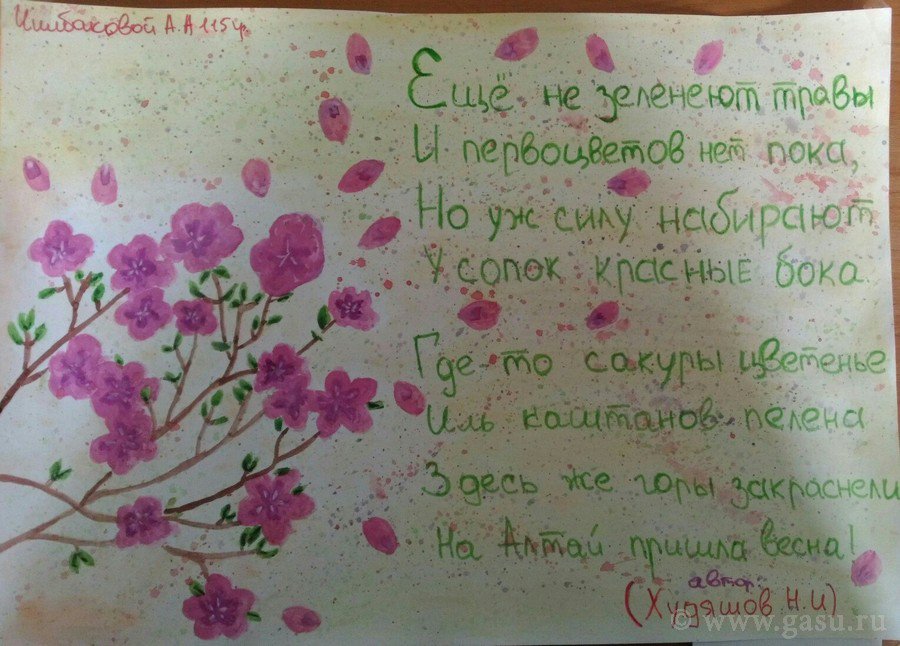 А.А 115 гр.
Ещё не зеленеют травы
И первоцветов нет пока,
Но уж силу набирают
У сопок красные бока.
Где то сакуры цветенье
Иль каштанов пелена
Здесь же горы закраснели
На Алтай пришла весна!
автор:
(Худяшов Н.И)
© www.gasu.ru